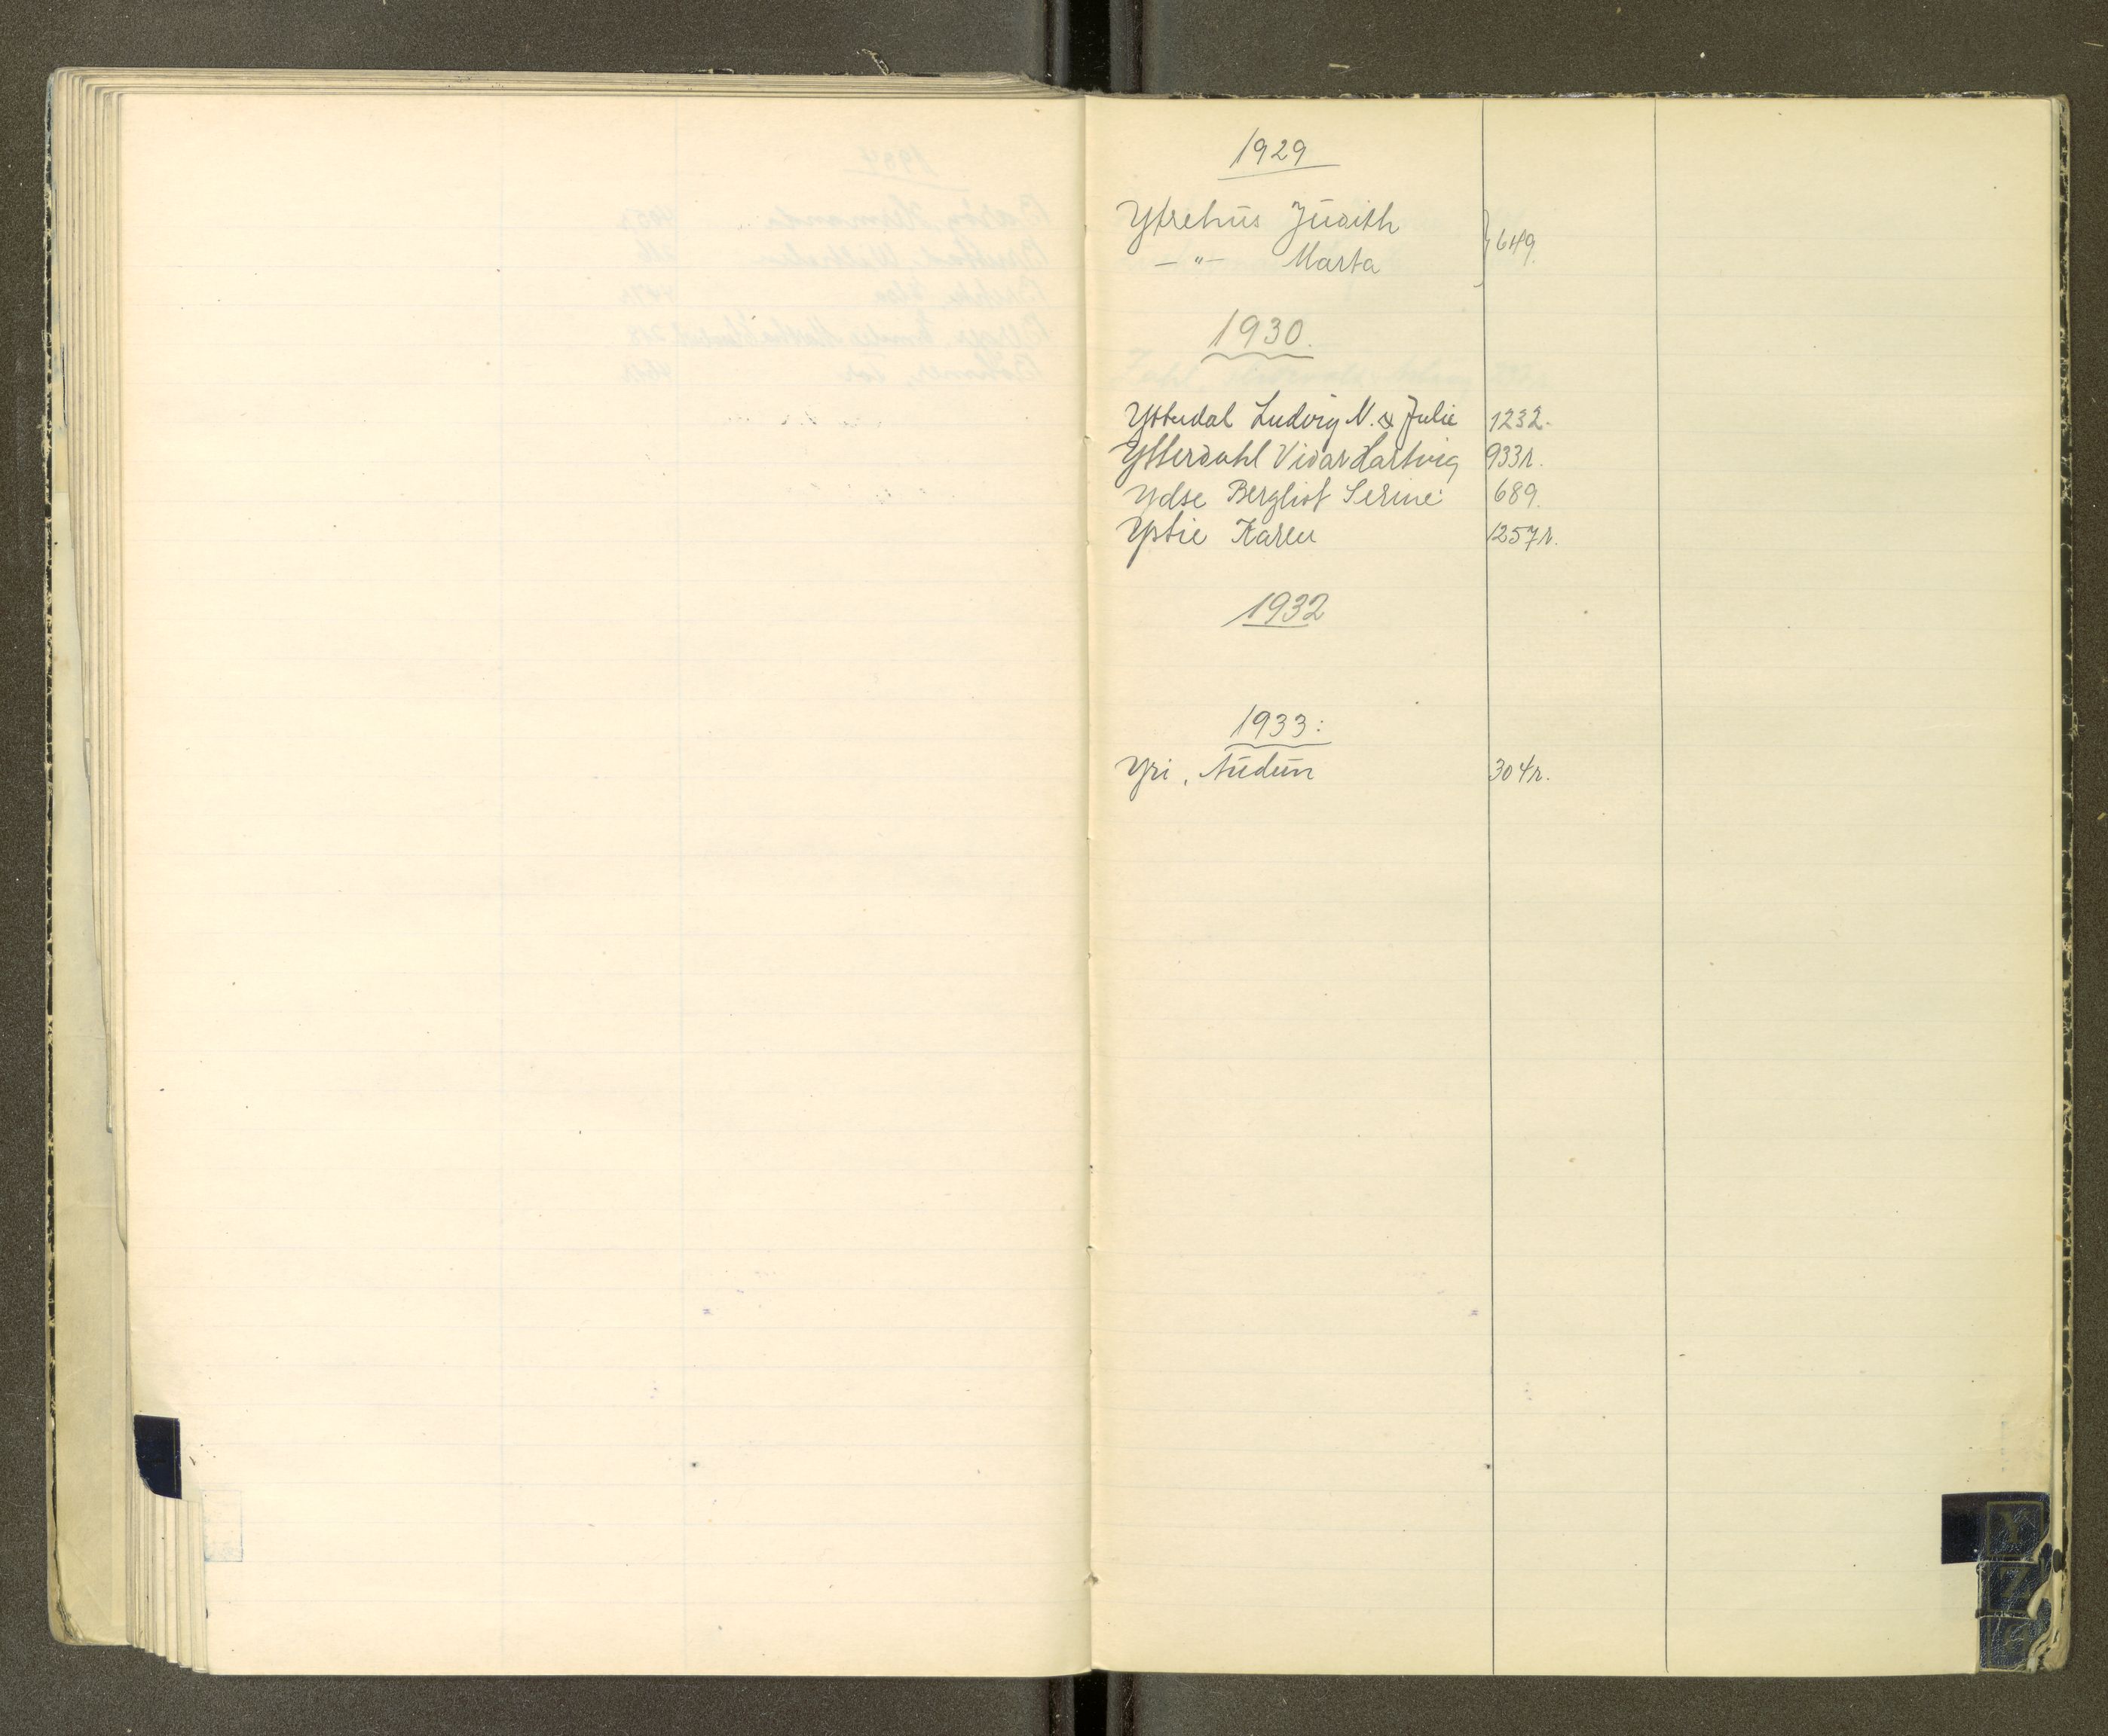 1929
Ytrehus Judith } 649.
—"— Marta
1930.
Ytterdal Ludvig N. & Julie 1232.
Ytterdahl Vidar Hartvig 933r.
Ydse Bergliot Serine 689.
Ystie Karen 1257r.
1932
1933:
Yri, Audun 304r.
Y
Z